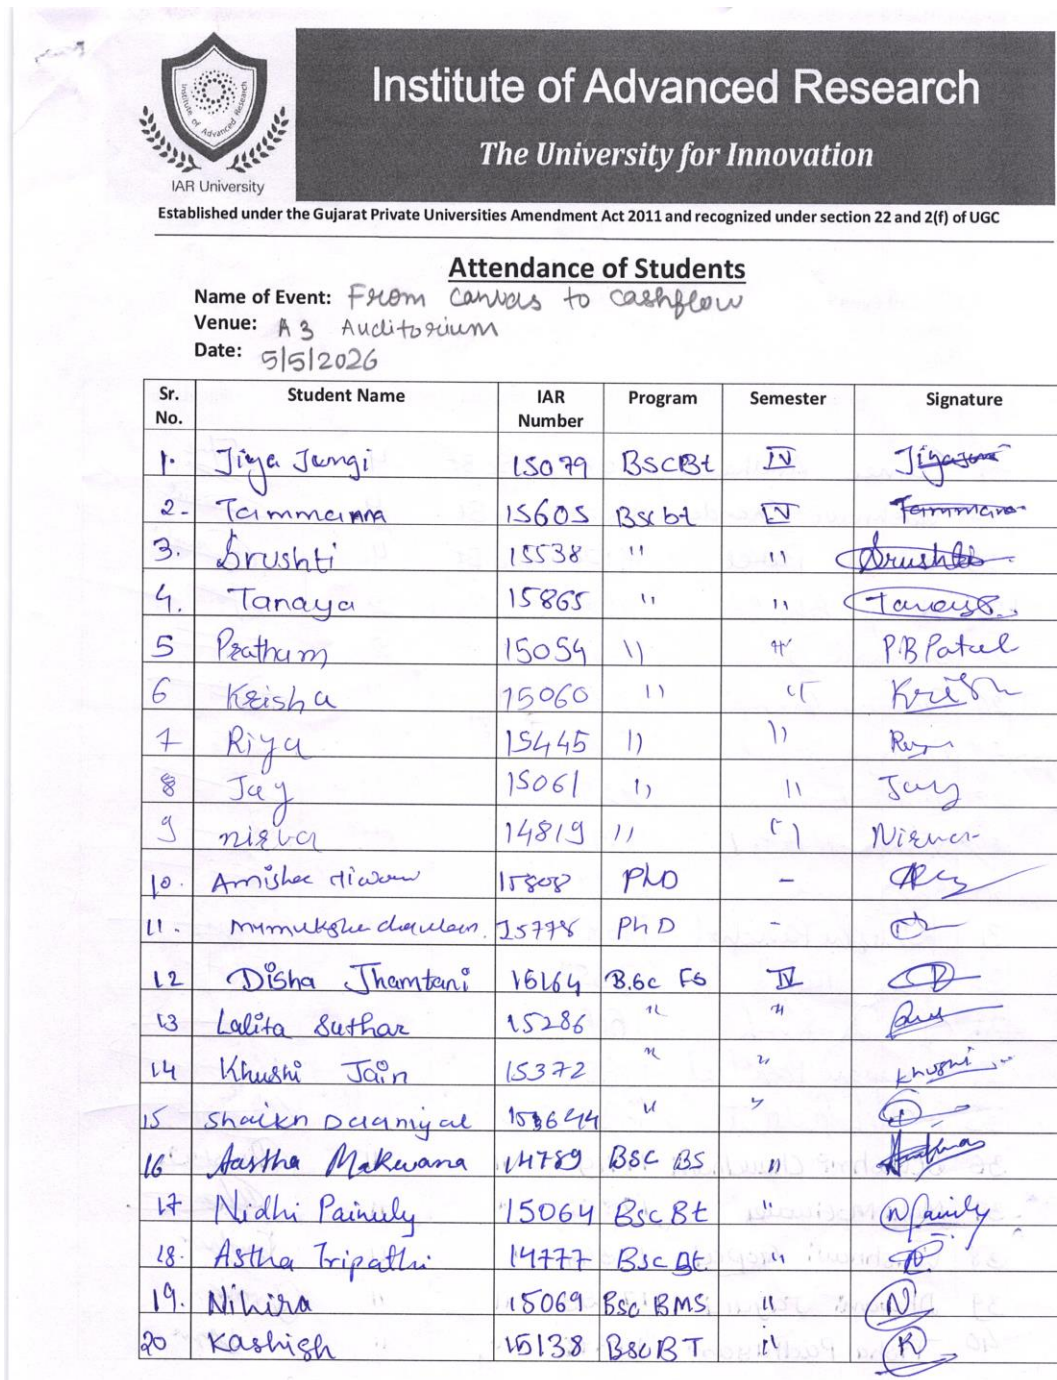 Institute of Advanced Research
The University for Innovation
Institute of Advanced Research
IAR University
Established under the Gujarat Private Universities Amendment Act 2011 and recognized under section 22 and 2(f) of UGC
Attendance of Students
Name of Event: From canvas to cashflow
Venue: A3 Auditorium
Date: 5/5/2026
Sr. No. Student Name IAR Number Program Semester Signature
1. Jiya Jungi 15079 BscBt IV
2- Tammanna 15605 Bscbt IV Tammana
3. Srushti 15538 " " Srushti
4. Tanaya 15865 " " Tanaya
5 Pratham 15054 " " P.B Patel
6 Krisha 15060 " " Krish
7 Riya 15445 " "
8 Jay 15061 " " Jay
9 nirva 14819 " " Nirva
10. Amishee 15808 PhD -
11. 15778 PhD -
12 Disha Jhamtani 15164 B.Sc FS IV
13 Lalita Suthar 15286 " "
14 Khushi Jain 15372 " " Khushi
15 Shaikh Daaniyal " "
16 Aastha Makwana 14789 BSC BS "
17 Nidhi Painuly 15064 BscBt " N Painily
18. Astha Tripathi 14777 Bsc Bt "
19. Nihira 15069 Bsc BMS " Ni
20 Kashish 15138 BscBT " K